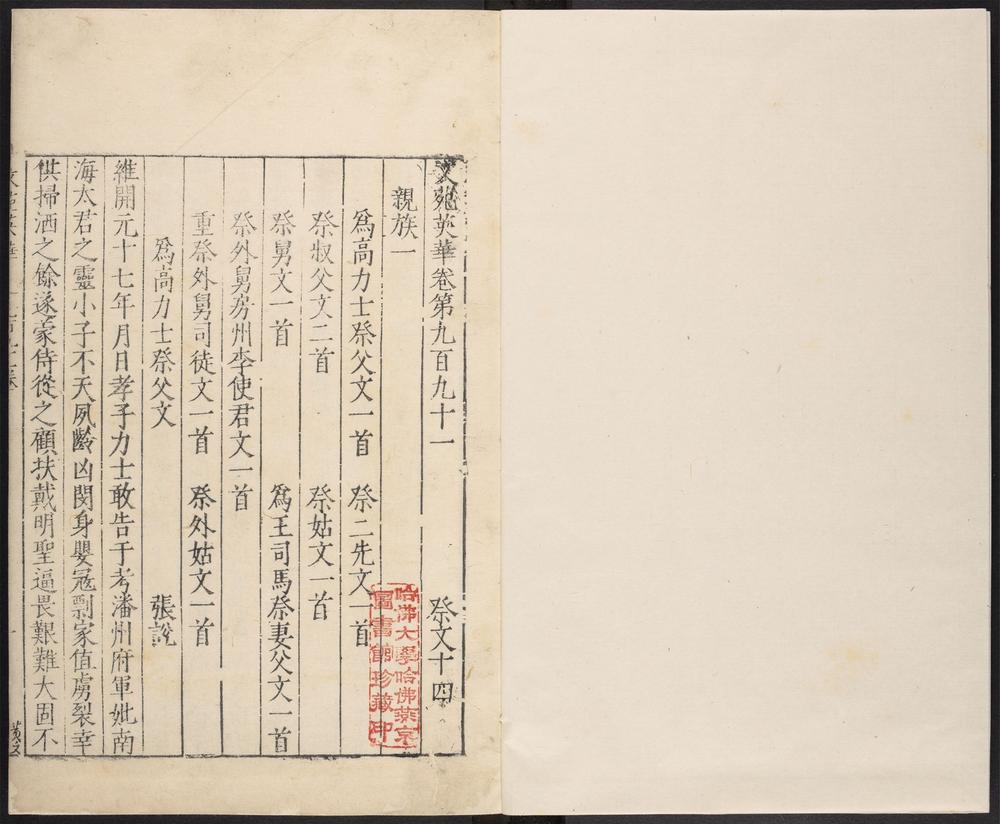 文苑英華卷第九百九十一 祭文十四
親族一
為高力士祭父文一首 祭二先文一首
祭叔父文二首 祭姑文一首
祭舅文一首 為王司馬祭妻父文一首
祭外舅房州李使君文一首
重祭外舅司徒文一首 祭外姑文一首
為高力士祭父文 張說
維開元十七年月日孝子力士敢告于考潘州府軍妣南
海太君之靈小子不天夙齡凶閔身嬰寇剽家值虜裂幸
供掃洒之餘遂蒙侍從之顧扶戴明聖逼畏艱難大固不
哈佛大學哈佛燕京
圖書館珍藏印